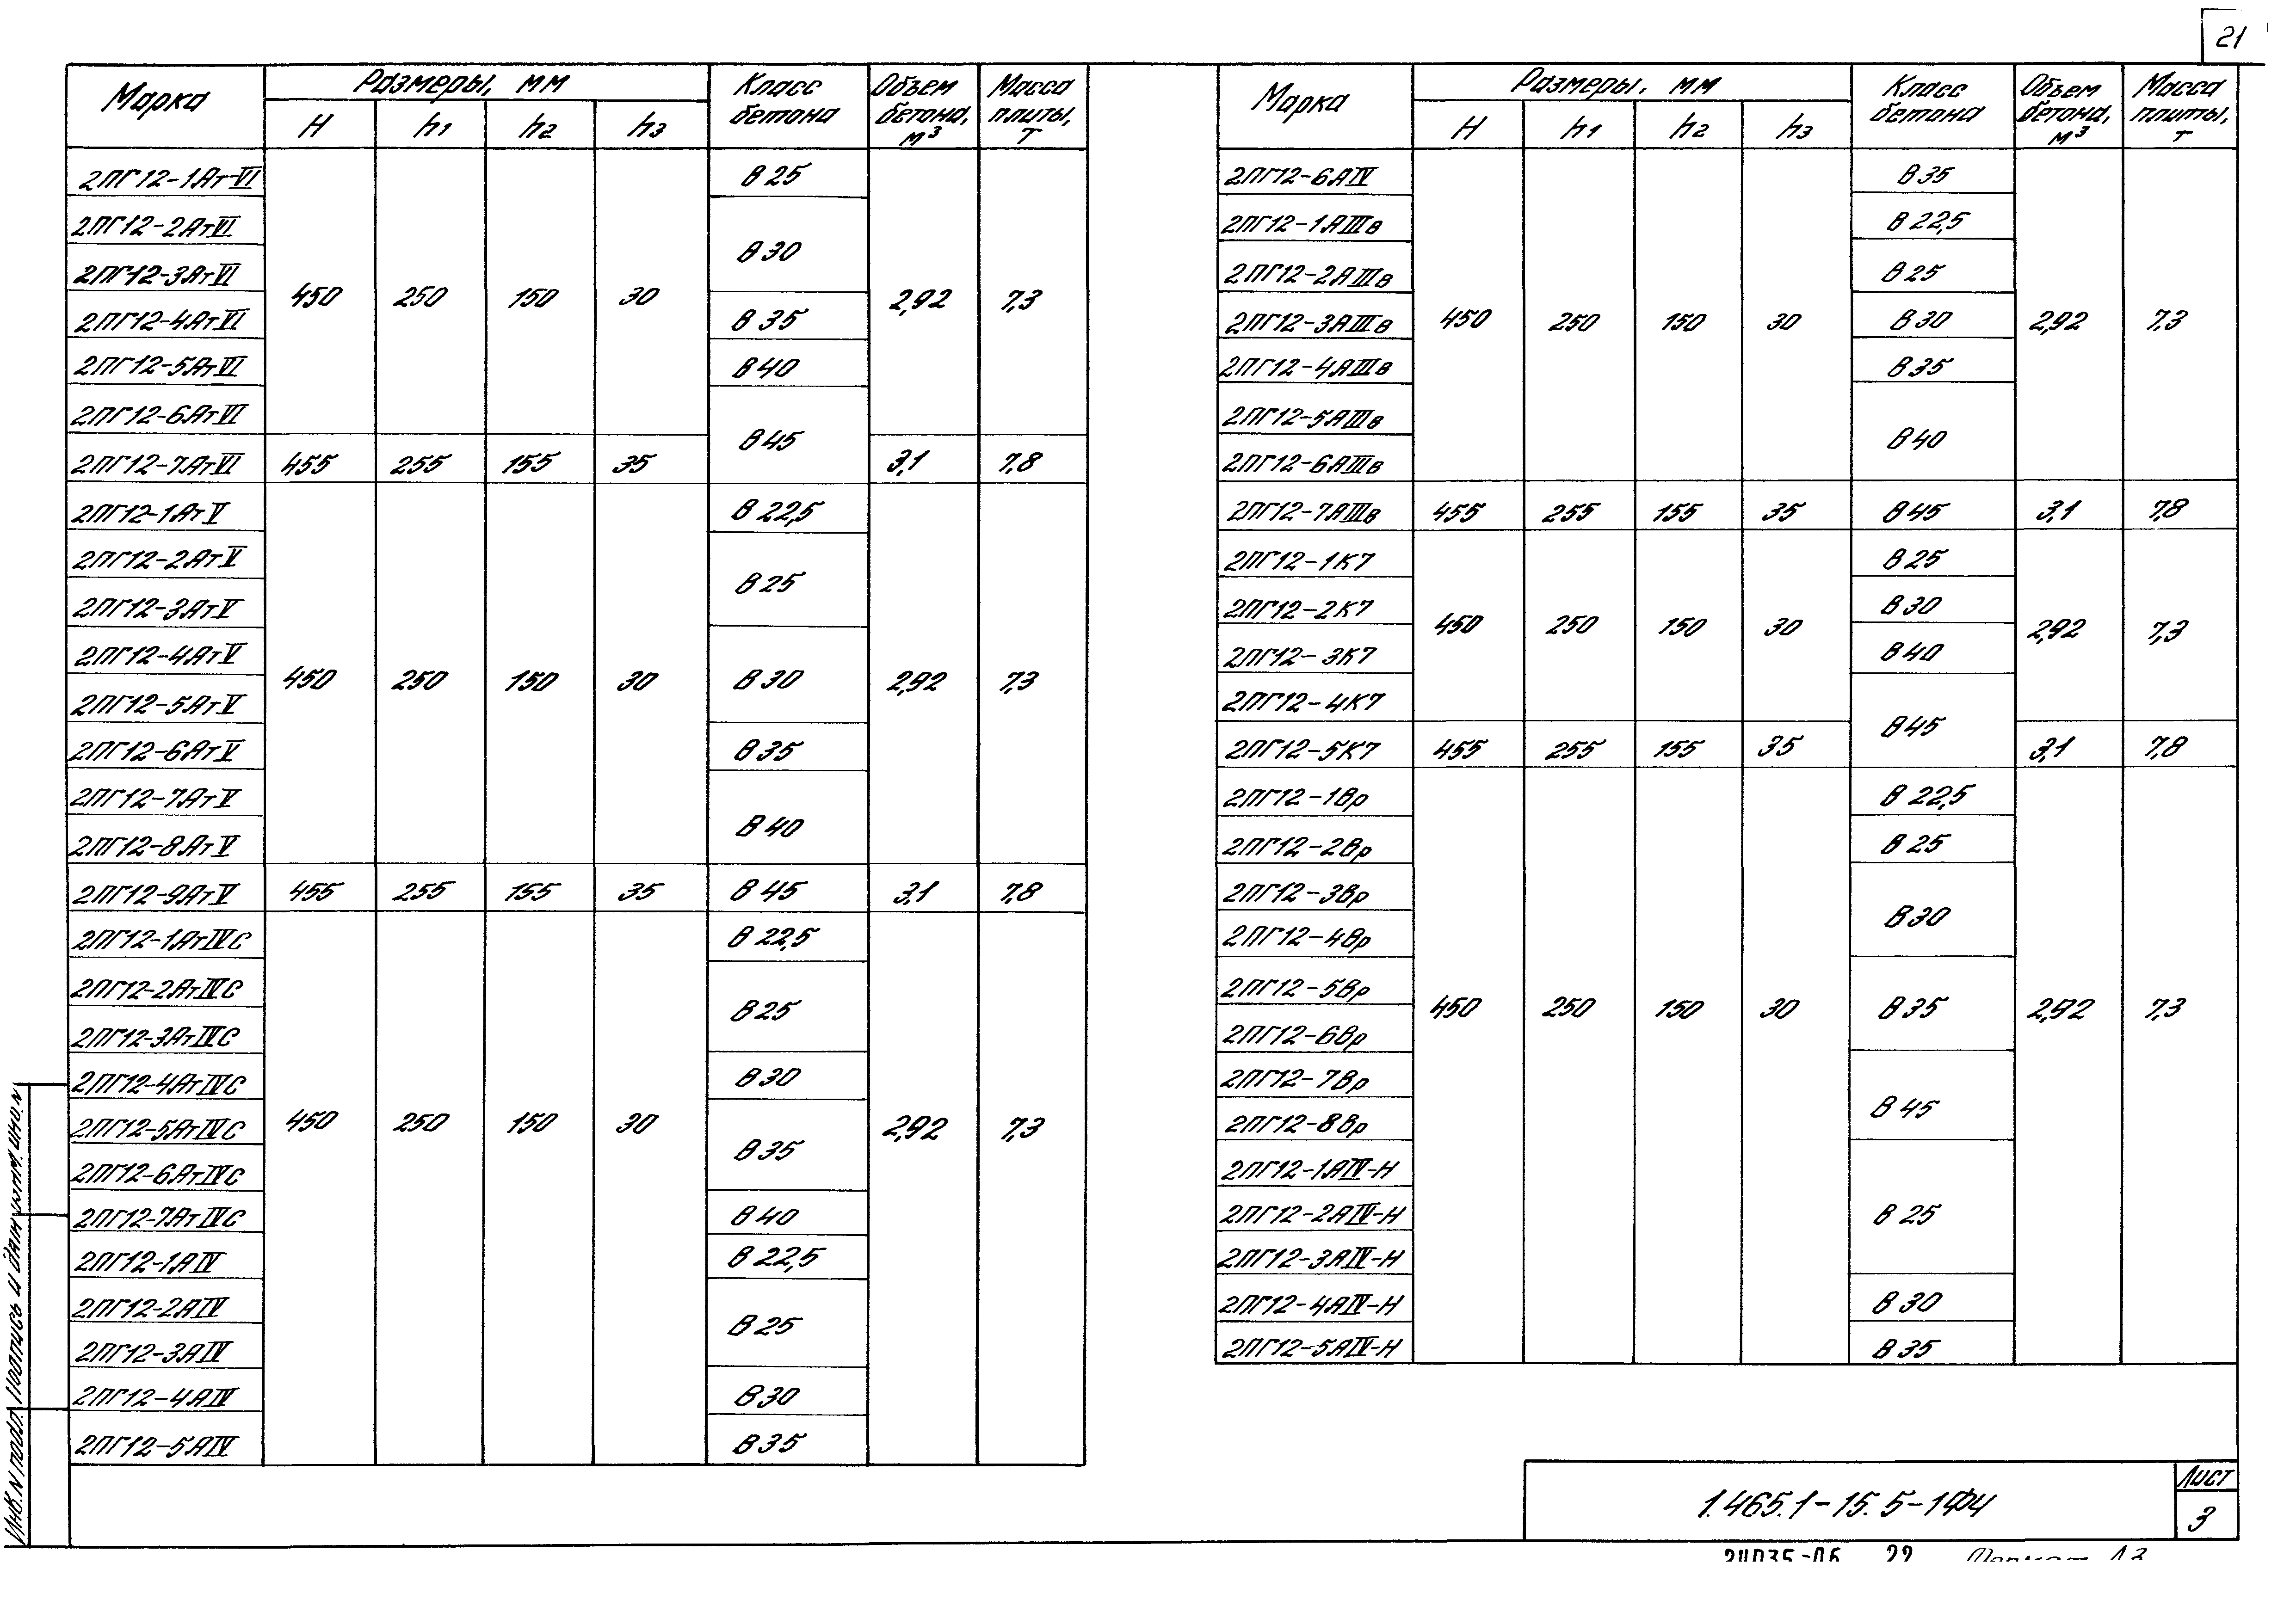 21
Марка Размеры, мм Класс бетона Объем бетона, м³ Масса плиты, т
H h1 h2 h3
2ПГ12-1Ат-VI В25
2ПГ12-2АтVI
В30
2ПГ12-3АтVI
450 250 150 30 2,92 7,3
2ПГ12-4АтVI В35
2ПГ12-5АтVI В40
2ПГ12-6АтVI
В45
2ПГ12-7АтVI 455 255 155 35 3,1 7,8
2ПГ12-1АтV В22,5
2ПГ12-2АтV
В25
2ПГ12-3АтV
2ПГ12-4АтV
450 250 150 30 В30 2,92 7,3
2ПГ12-5АтV
2ПГ12-6АтV В35
2ПГ12-7АтV
В40
2ПГ12-8АтV
2ПГ12-9АтV 455 255 155 35 В45 3,1 7,8
2ПГ12-1АтIVС В22,5
2ПГ12-2АтIVС
В25
2ПГ12-3АтIVС
2ПГ12-4АтIVС В30
2ПГ12-5АтIVС 450 250 150 30 2,92 7,3
В35
2ПГ12-6АтIVС
2ПГ12-7АтIVС В40
2ПГ12-1АIV В22,5
2ПГ12-2АIV
В25
2ПГ12-3АIV
2ПГ12-4АIV В30
2ПГ12-5АIV В35
Марка Размеры, мм Класс бетона Объем бетона, м³ Масса плиты, т
H h1 h2 h3
2ПГ12-6АIV В35
2ПГ12-1АIIIв В22,5
2ПГ12-2АIIIв В25
2ПГ12-3АIIIв 450 250 150 30 В30 2,92 7,3
2ПГ12-4АIIIв В35
2ПГ12-5АIIIв
В40
2ПГ12-6АIIIв
2ПГ12-7АIIIв 455 255 155 35 В45 3,1 7,8
2ПГ12-1К7 В25
2ПГ12-2К7 В30
450 250 150 30 2,92 7,3
2ПГ12-3К7 В40
2ПГ12-4К7
В45
2ПГ12-5К7 455 255 155 35 3,1 7,8
2ПГ12-1Вр В22,5
2ПГ12-2Вр В25
2ПГ12-3Вр
В30
2ПГ12-4Вр
2ПГ12-5Вр
450 250 150 30 В35 2,92 7,3
2ПГ12-6Вр
2ПГ12-7Вр
В45
2ПГ12-8Вр
2ПГ12-1АIV-Н
2ПГ12-2АIV-Н В25
2ПГ12-3АIV-Н
2ПГ12-4АIV-Н В30
2ПГ12-5АIV-Н В35
Инв. N подл. Подпись и дата Взам. инв. N
1.465.1-15.5-1Ф4
Лист
3
24035-06 22 Формат А3